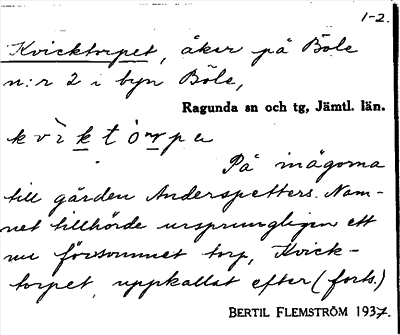 1-2.
Kvicktorpet, åker på Böle
n:r 2 i byn Böle,
Ragunda sn och tg, Jämtl. län.
På inägorna
till gården Anderspetters. Nam-
net tillhörde ursprungligen ett
nu försvunnet torp, Kvick-
torpet, uppkallat efter (forts.)
BERTIL FLEMSTRÖM 1937.